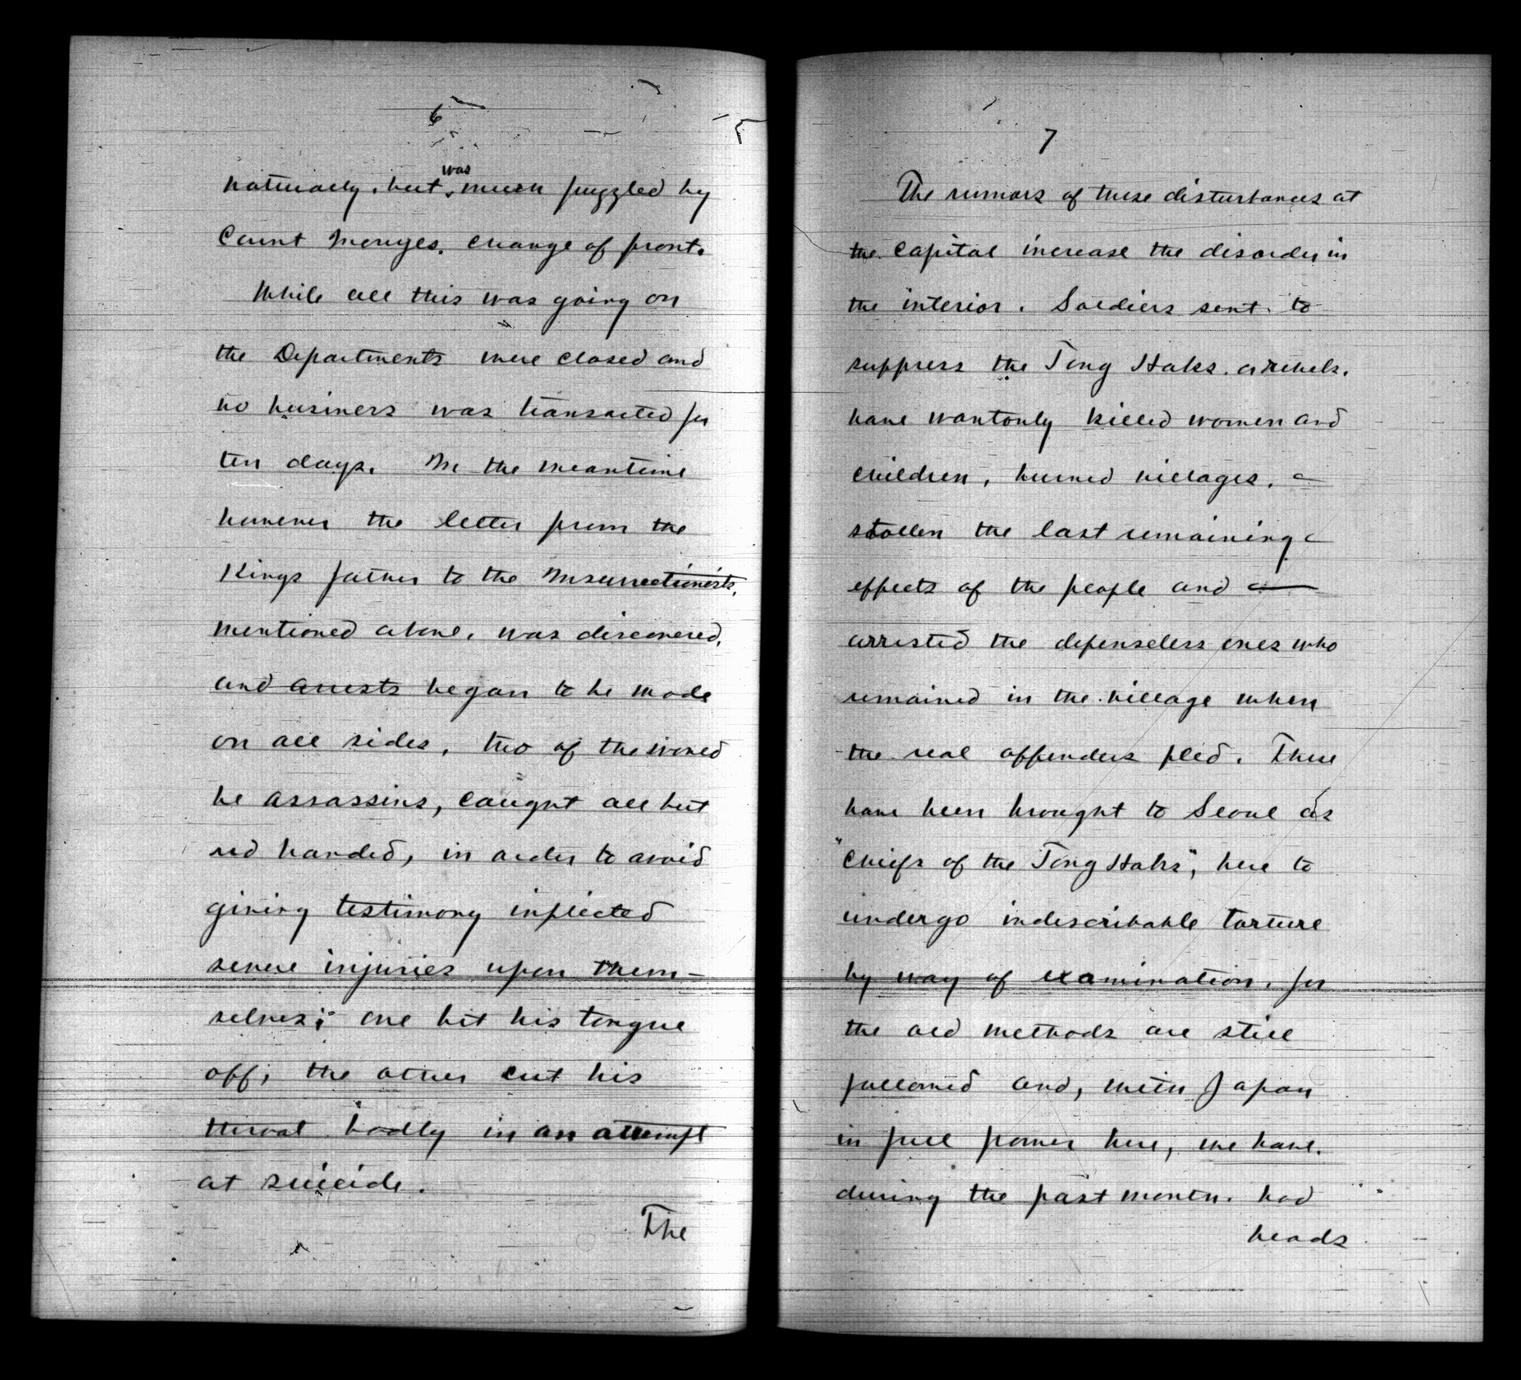 6
naturally, but was much puzzled by
Count Mouye's change of front.
While all this was going on
the Departments were closed and
no business was transacted for
ten days. In the meantime
however the letter from the
Kings father to the Insurrectionists,
mentioned above, was discovered,
and arrests began to be made
on all sides, two of the would
be assassins, caught all but
red handed, in order to avoid
giving testimony inflicted
severe injuries upon them-
selves; one bit his tongue
off, the other cut his
throat badly in an attempt
at suicide.
The
7
The rumors of these disturbances at
the capital increase the disorder in
the interior. Soldiers sent to
suppress the Tong Haks, or rebels,
have wantonly killed women and
children, burned villages,
stollen the last remaining
effects of the people and
arrested the defenseless ones who
remained in the village when
the real offenders fled. These
have been brought to Seoul as
"chiefs of the Tong Haks", here to
undergo indescribable torture
by way of examination, for
the old methods are still
followed and, with Japan
in full power here, we have,
during the past month, had
heads